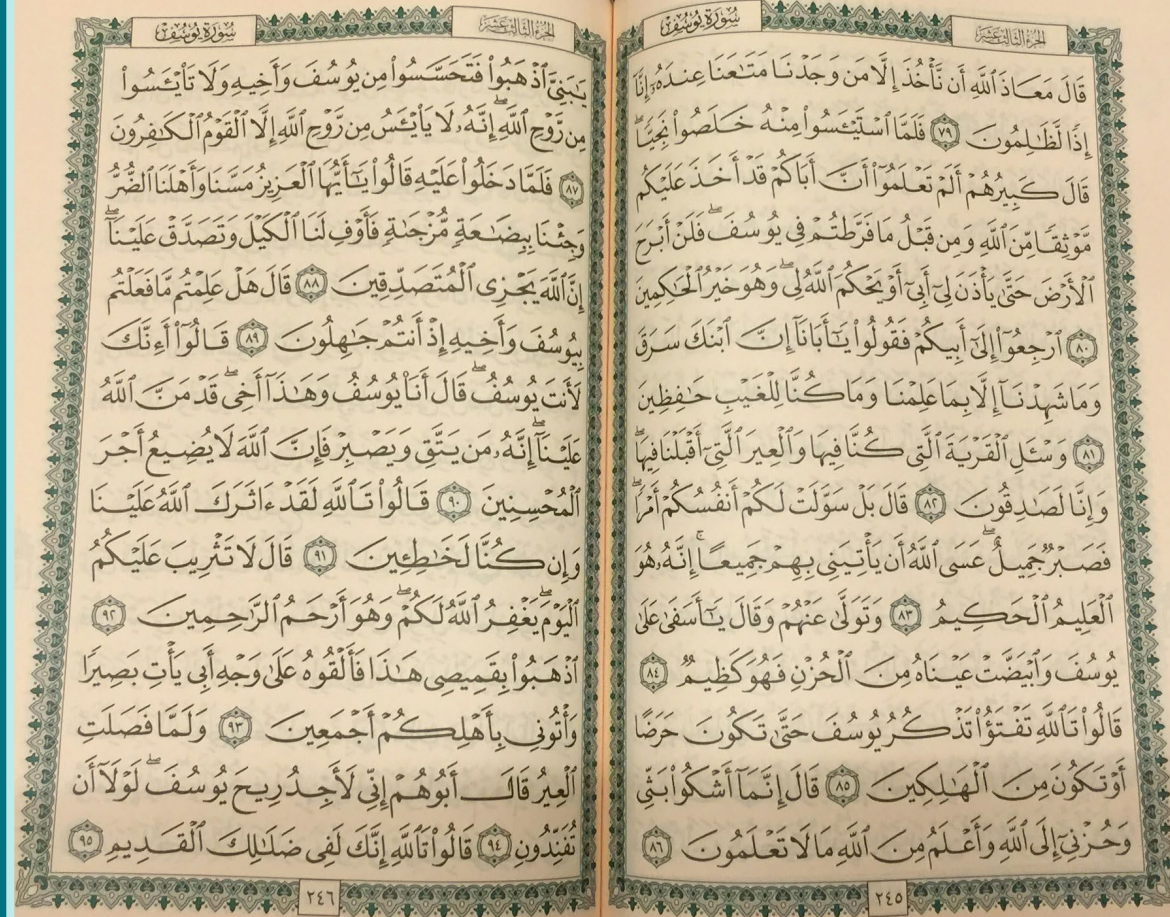 الجزء الثالث عشر
سورة يوسف
قَالَ مَعَاذَ ٱللَّهِ أَن نَّأْخُذَ إِلَّا مَن وَجَدْنَا مَتَـٰعَنَا عِندَهُۥٓ إِنَّآ
إِذًا لَّظَـٰلِمُونَ ٧٩ فَلَمَّا ٱسْتَيْـَٔسُوا۟ مِنْهُ خَلَصُوا۟ نَجِيًّا ۖ
قَالَ كَبِيرُهُمْ أَلَمْ تَعْلَمُوٓا۟ أَنَّ أَبَاكُمْ قَدْ أَخَذَ عَلَيْكُم
مَّوْثِقًا مِّنَ ٱللَّهِ وَمِن قَبْلُ مَا فَرَّطتُمْ فِى يُوسُفَ ۖ فَلَنْ أَبْرَحَ
ٱلْأَرْضَ حَتَّىٰ يَأْذَنَ لِىٓ أَبِىٓ أَوْ يَحْكُمَ ٱللَّهُ لِى ۖ وَهُوَ خَيْرُ ٱلْحَـٰكِمِينَ
٨٠ ٱرْجِعُوٓا۟ إِلَىٰٓ أَبِيكُمْ فَقُولُوا۟ يَـٰٓأَبَانَآ إِنَّ ٱبْنَكَ سَرَقَ
وَمَا شَهِدْنَآ إِلَّا بِمَا عَلِمْنَا وَمَا كُنَّا لِلْغَيْبِ حَـٰفِظِينَ
٨١ وَسْـَٔلِ ٱلْقَرْيَةَ ٱلَّتِى كُنَّا فِيهَا وَٱلْعِيرَ ٱلَّتِىٓ أَقْبَلْنَا فِيهَا ۖ
وَإِنَّا لَصَـٰدِقُونَ ٨٢ قَالَ بَلْ سَوَّلَتْ لَكُمْ أَنفُسُكُمْ أَمْرًا ۖ
فَصَبْرٌ جَمِيلٌ ۖ عَسَى ٱللَّهُ أَن يَأْتِيَنِى بِهِمْ جَمِيعًا ۚ إِنَّهُۥ هُوَ
ٱلْعَلِيمُ ٱلْحَكِيمُ ٨٣ وَتَوَلَّىٰ عَنْهُمْ وَقَالَ يَـٰٓأَسَفَىٰ عَلَىٰ
يُوسُفَ وَٱبْيَضَّتْ عَيْنَاهُ مِنَ ٱلْحُزْنِ فَهُوَ كَظِيمٌ ٨٤
قَالُوا۟ تَٱللَّهِ تَفْتَؤُا۟ تَذْكُرُ يُوسُفَ حَتَّىٰ تَكُونَ حَرَضًا
أَوْ تَكُونَ مِنَ ٱلْهَـٰلِكِينَ ٨٥ قَالَ إِنَّمَآ أَشْكُوا۟ بَثِّى
وَحُزْنِىٓ إِلَى ٱللَّهِ وَأَعْلَمُ مِنَ ٱللَّهِ مَا لَا تَعْلَمُونَ ٨٦
٢٤٥
الجزء الثالث عشر
سورة يوسف
يَـٰبَنِىَّ ٱذْهَبُوا۟ فَتَحَسَّسُوا۟ مِن يُوسُفَ وَأَخِيهِ وَلَا تَا۟يْـَٔسُوا۟
مِن رَّوْحِ ٱللَّهِ ۖ إِنَّهُۥ لَا يَا۟يْـَٔسُ مِن رَّوْحِ ٱللَّهِ إِلَّا ٱلْقَوْمُ ٱلْكَـٰفِرُونَ
٨٧ فَلَمَّا دَخَلُوا۟ عَلَيْهِ قَالُوا۟ يَـٰٓأَيُّهَا ٱلْعَزِيزُ مَسَّنَا وَأَهْلَنَا ٱلضُّرُّ
وَجِئْنَا بِبِضَـٰعَةٍ مُّزْجَىٰةٍ فَأَوْفِ لَنَا ٱلْكَيْلَ وَتَصَدَّقْ عَلَيْنَآ ۖ
إِنَّ ٱللَّهَ يَجْزِى ٱلْمُتَصَدِّقِينَ ٨٨ قَالَ هَلْ عَلِمْتُم مَّا فَعَلْتُم
بِيُوسُفَ وَأَخِيهِ إِذْ أَنتُمْ جَـٰهِلُونَ ٨٩ قَالُوٓا۟ أَءِنَّكَ
لَأَنتَ يُوسُفُ ۖ قَالَ أَنَا۠ يُوسُفُ وَهَـٰذَآ أَخِى ۖ قَدْ مَنَّ ٱللَّهُ
عَلَيْنَآ ۖ إِنَّهُۥ مَن يَتَّقِ وَيَصْبِرْ فَإِنَّ ٱللَّهَ لَا يُضِيعُ أَجْرَ
ٱلْمُحْسِنِينَ ٩٠ قَالُوا۟ تَٱللَّهِ لَقَدْ ءَاثَرَكَ ٱللَّهُ عَلَيْنَا
وَإِن كُنَّا لَخَـٰطِـِٔينَ ٩١ قَالَ لَا تَثْرِيبَ عَلَيْكُمُ
ٱلْيَوْمَ ۖ يَغْفِرُ ٱللَّهُ لَكُمْ ۖ وَهُوَ أَرْحَمُ ٱلرَّٰحِمِينَ ٩٢
ٱذْهَبُوا۟ بِقَمِيصِى هَـٰذَا فَأَلْقُوهُ عَلَىٰ وَجْهِ أَبِى يَأْتِ بَصِيرًا
وَأْتُونِى بِأَهْلِكُمْ أَجْمَعِينَ ٩٣ وَلَمَّا فَصَلَتِ
ٱلْعِيرُ قَالَ أَبُوهُمْ إِنِّى لَأَجِدُ رِيحَ يُوسُفَ ۖ لَوْلَآ أَن
تُفَنِّدُونِ ٩٤ قَالُوا۟ تَٱللَّهِ إِنَّكَ لَفِى ضَلَـٰلِكَ ٱلْقَدِيمِ ٩٥
٢٤٦